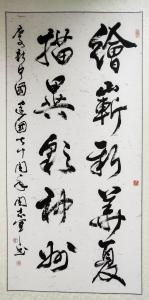 繪嶄新華夏
描異彩神州
慶祝新中國建國六十周年周志軍書